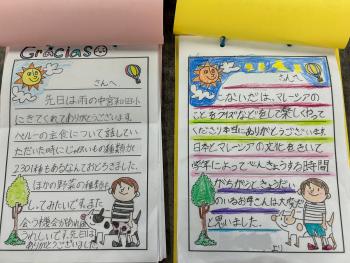 Gracias
さんへ
先日は雨の中宮和田小
にきてくれてありがとうございます。
ペルーの主食について話してい
ただいた時にじゃがいもの種類が
2301種もあるなんておどろきました。
ほかの野菜の種類も
してみたいです。また
会う機会があれば
うれしいです。先日は
ありがとうございました。
さんへ
こないだは、マレーシアの
ことをクイズなどをして楽しくやって
くださり本当にありがとうございます。
日本とマレーシアの文化をきいて
学年によってべんきょうする時間
がちがうときょうだい
のいるお母さんは大変だ
と思いました。
より